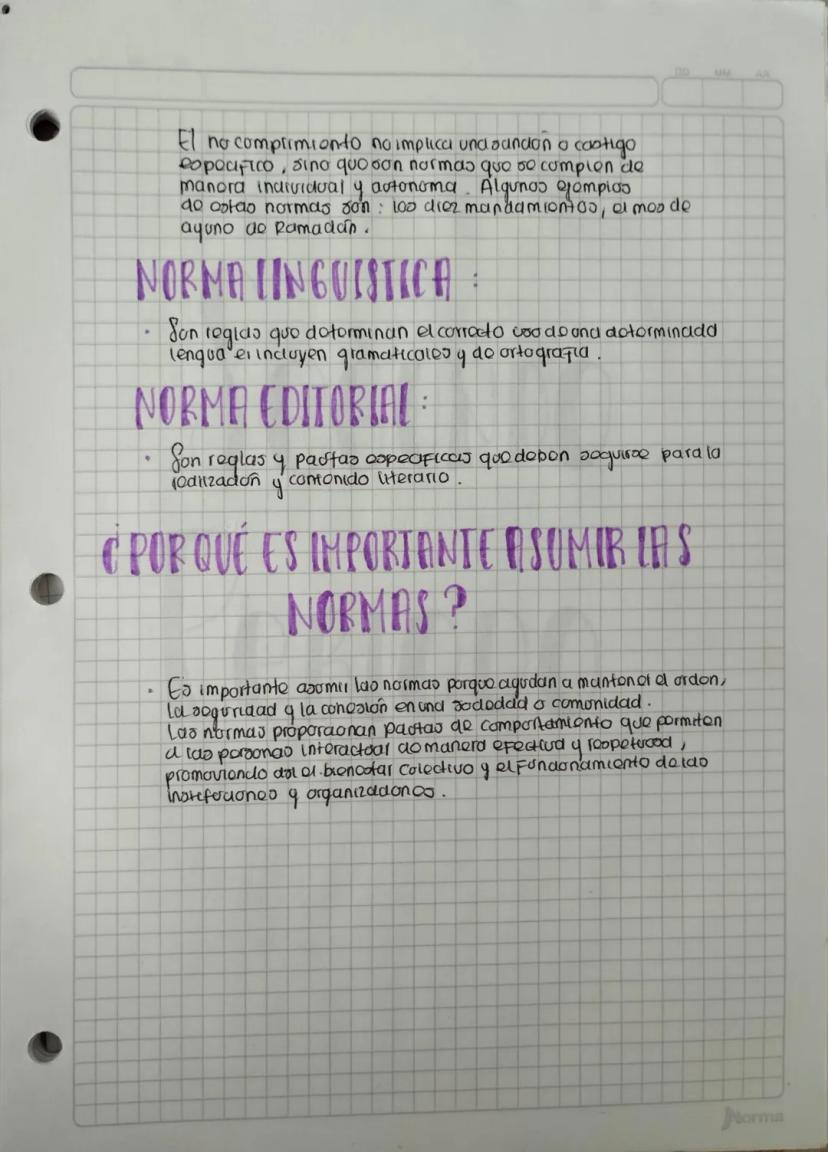 DD MM AA
El no comprimiento no implica una sanción o castigo
especifico, sino que son normas que se complen de
manera individual y autonoma. Algunos ejemplos
de estas normas son: los diez mandamientos, el mes de
ayuno de Ramadán.
NORMA LINGUISTICA:
· Son reglas que determinan el correcto uso de una determinada
lengua e incluyen gramaticales y de ortografia.
NORMA EDITORIAL:
· Son reglas y pautas especificas que deben seguirse para la
realización y contenido literario.
¿POR QUÉ ES IMPORTANTE ASUMIR LAS
NORMAS?
· Es importante asumir las normas porque ayudan a mantener el orden,
la seguridad y la cohesión en una sociedad o comunidad.
Las normas proporcionan pautas de comportamiento que permiten
a las personas interactuar de manera efectiva y respetuosa,
promoviendo así el bienestar colectivo y el funcionamiento de las
instituciones y organizaciones.
Norma